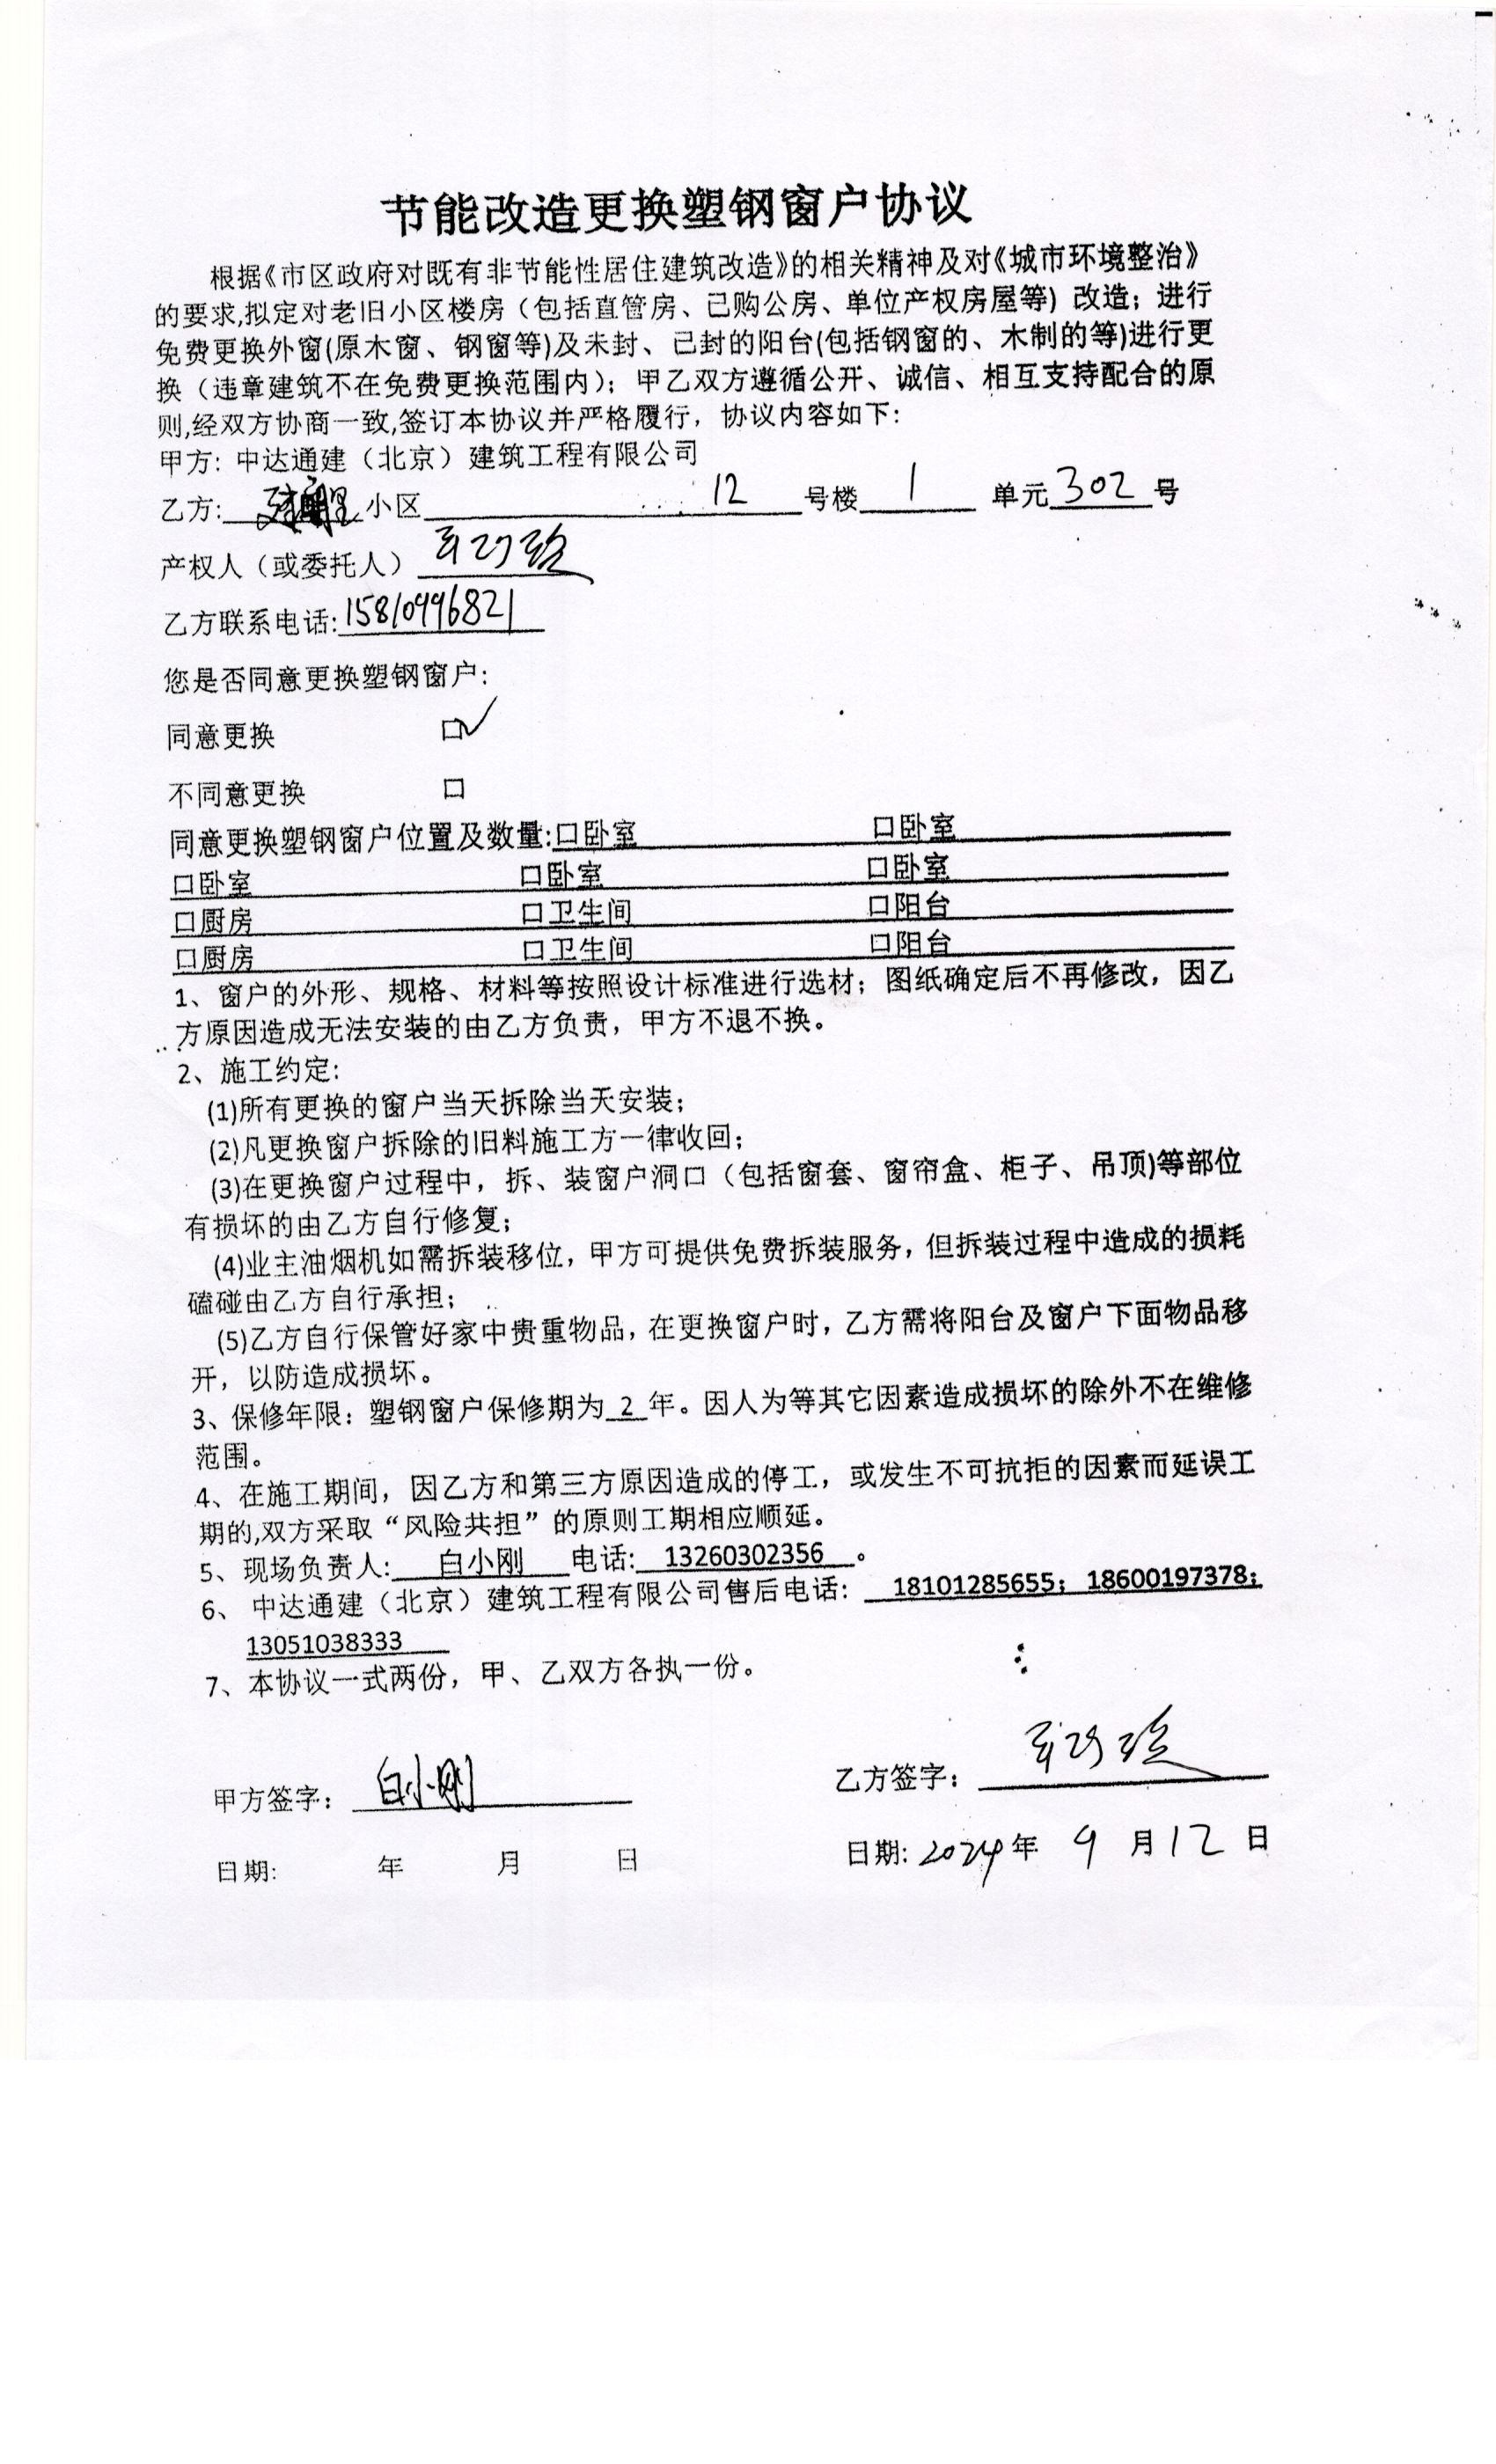 节能改造更换塑钢窗户协议
根据《市区政府对既有非节能性居住建筑改造》的相关精神及对《城市环境整治》
的要求,拟定对老旧小区楼房（包括直管房、已购公房、单位产权房屋等）改造；进行
免费更换外窗(原木窗、钢窗等)及未封、已封的阳台(包括钢窗的、木制的等)进行更
换（违章建筑不在免费更换范围内）；甲乙双方遵循公开、诚信、相互支持配合的原
则,经双方协商一致,签订本协议并严格履行，协议内容如下：
甲方: 中达通建（北京）建筑工程有限公司
乙方: 小区 12 号楼 1 单元 302 号
产权人（或委托人）
乙方联系电话: 15810996821
您是否同意更换塑钢窗户：
同意更换 □✓
不同意更换 □
同意更换塑钢窗户位置及数量:口卧室 口卧室
口卧室 口卧室 口卧室
口厨房 口卫生间 口阳台
口厨房 口卫生间 口阳台
1、窗户的外形、规格、材料等按照设计标准进行选材；图纸确定后不再修改，因乙
方原因造成无法安装的由乙方负责，甲方不退不换。
2、施工约定:
(1)所有更换的窗户当天拆除当天安装；
(2)凡更换窗户拆除的旧料施工方一律收回；
(3)在更换窗户过程中，拆、装窗户洞口（包括窗套、窗帘盒、柜子、吊顶)等部位
有损坏的由乙方自行修复；
(4)业主油烟机如需拆装移位，甲方可提供免费拆装服务，但拆装过程中造成的损耗
磕碰由乙方自行承担；
(5)乙方自行保管好家中贵重物品，在更换窗户时，乙方需将阳台及窗户下面物品移
开，以防造成损坏。
3、保修年限：塑钢窗户保修期为 2 年。因人为等其它因素造成损坏的除外不在维修
范围。
4、在施工期间，因乙方和第三方原因造成的停工，或发生不可抗拒的因素而延误工
期的,双方采取“风险共担”的原则工期相应顺延。
5、现场负责人: 白小刚 电话: 13260302356 。
6、中达通建（北京）建筑工程有限公司售后电话: 18101285655；18600197378；
13051038333
7、本协议一式两份，甲、乙双方各执一份。
甲方签字： 白小刚 乙方签字：
日期: 年 月 日 日期: 2024年 9 月 12 日